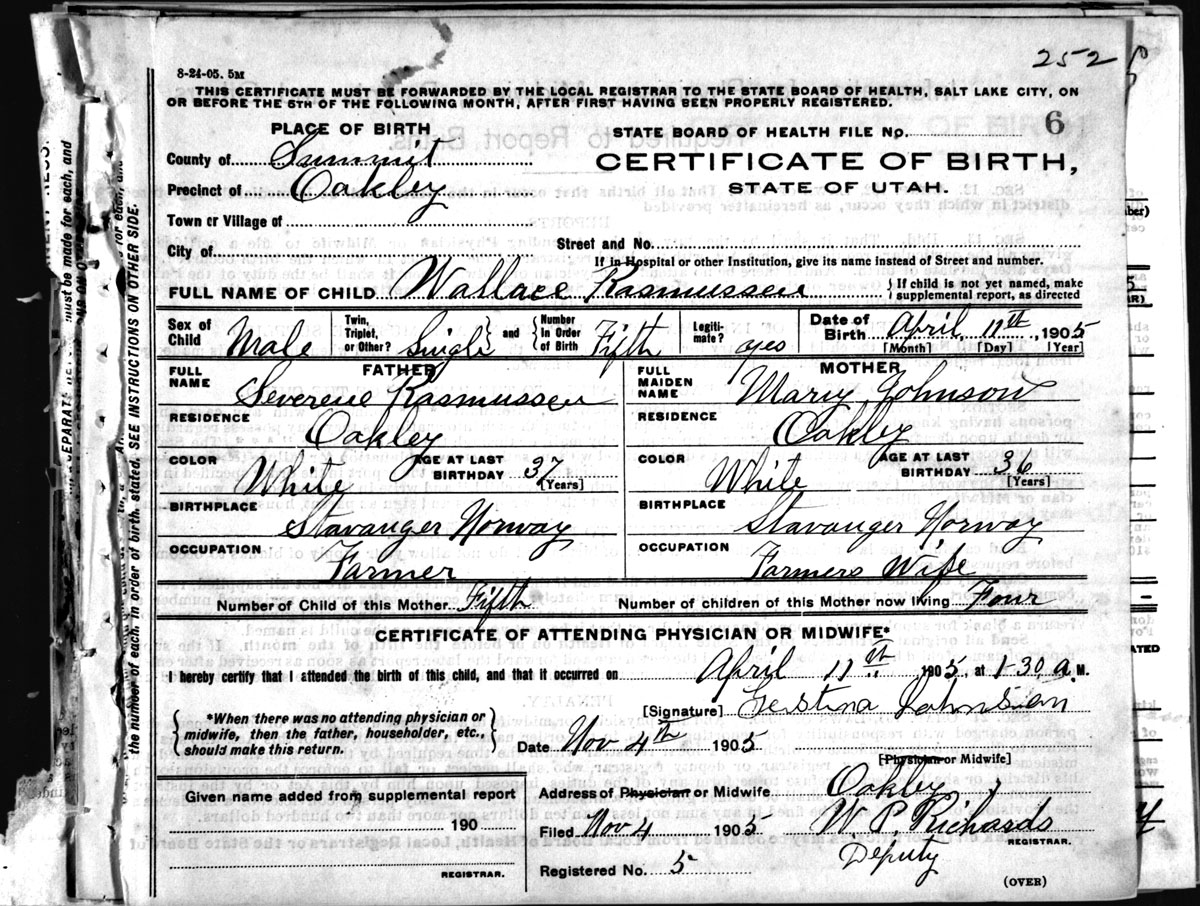 252
8-24-05. 5M
THIS CERTIFICATE MUST BE FORWARDED BY THE LOCAL REGISTRAR TO THE STATE BOARD OF HEALTH, SALT LAKE CITY, ON
OR BEFORE THE 5TH OF THE FOLLOWING MONTH, AFTER FIRST HAVING BEEN PROPERLY REGISTERED.
PLACE OF BIRTH
STATE BOARD OF HEALTH FILE No. 6
County of Summit
CERTIFICATE OF BIRTH,
Precinct of Oakley
STATE OF UTAH.
Town or Village of
City of
Street and No.
If in Hospital or other Institution, give its name instead of Street and number.
FULL NAME OF CHILD Wallace Rasmussen
If child is not yet named, make
supplemental report, as directed
Sex of Child Male
Twin, Triplet, or Other? Single and Number In Order of Birth Fifth
Legitimate? yes
Date of Birth April, 11th, 1905
[Month] [Day] [Year]
FATHER
FULL NAME Severene Rasmussen
RESIDENCE Oakley
COLOR White
AGE AT LAST BIRTHDAY 37
[Years]
BIRTHPLACE Stavanger Norway
OCCUPATION Farmer
MOTHER
FULL MAIDEN NAME Mary Johnson
RESIDENCE Oakley
COLOR White
AGE AT LAST BIRTHDAY 36
[Years]
BIRTHPLACE Stavanger Norway
OCCUPATION Farmers Wife
Number of Child of this Mother Fifth
Number of children of this Mother now living Four
CERTIFICATE OF ATTENDING PHYSICIAN OR MIDWIFE*
I hereby certify that I attended the birth of this child, and that it occurred on April 11th 1905, at 1-30 a. M.
[Signature]
*When there was no attending physician or
midwife, then the father, householder, etc.,
should make this return.
Date Nov 4th 1905
[Physician or Midwife]
Given name added from supplemental report
190
REGISTRAR.
Address of Physician or Midwife Oakley
Filed Nov 4 1905 W. P. Richards
REGISTRAR.
Registered No. 5
Deputy
(OVER)
the number of each, in order of birth, stated. SEE INSTRUCTIONS ON OTHER SIDE.